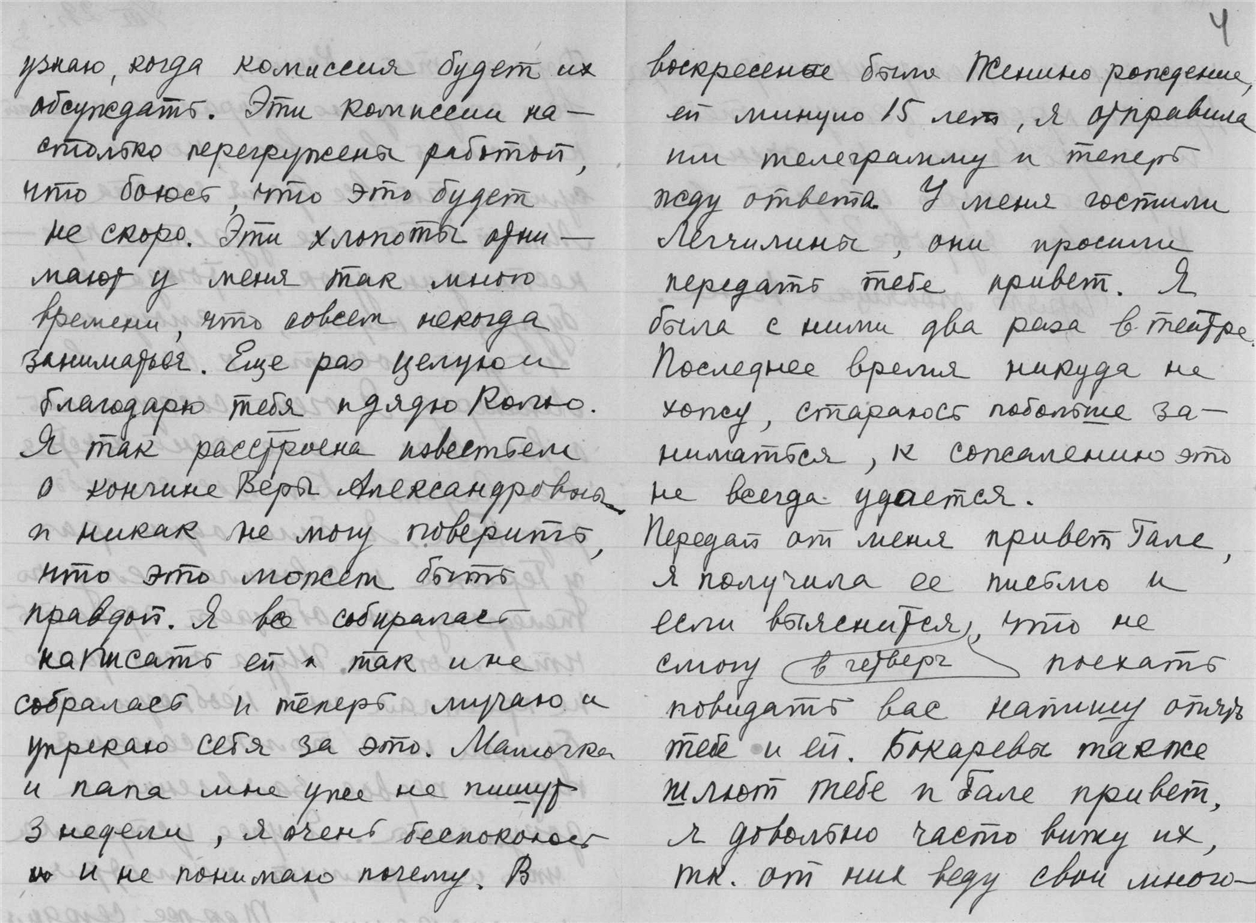 узнаю, когда комиссия будет их
обсуждать. Эти комиссии на-
столько перегружены работой,
что боюсь, что это будет
не скоро. Эти хлопоты отни-
мают у меня так много
времени, что совсем некогда
заниматься. Еще раз целую и
благодарю тебя и дядю Колю.
Я так расстроена известием
о кончине Веры Александровны
и никак не могу поверить,
что это может быть
правдой. Я все собиралась
написать ей и так и не
собралась и теперь мучаю и
упрекаю себя за это. Мамочка
и папа мне уже не пишут
3 недели, я очень беспокоюсь
и не понимаю почему. В
4
воскресенье было Женино рождение,
ей минуло 15 лет, я отправила
им телеграмму и теперь
жду ответа. У меня гостили
Легчилины, они просили
передать тебе привет. Я
была с ними два раза в театре.
Последнее время никуда не
хожу, стараюсь побольше за-
ниматься, к сожалению это
не всегда удается.
Передай от меня привет Гале,
я получила ее письмо и
если выяснится, что не
смогу в четверг поехать
повидать вас напишу опять
тебе и ей. Бокаревы также
шлют тебе и Гале привет,
я довольно часто вижу их,
тк. от них веду свои много-